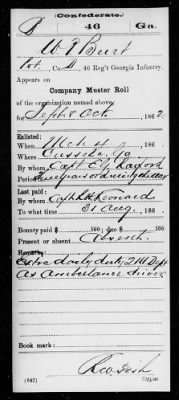 Confederate.
46 Ga.
W J Burt
Pvt., Co. D, 46 Reg't Georgia Infantry.
Appears on
Company Muster Roll
of the organization named above,
for Sept & Oct, 1862.
Enlisted:
When Mch 4, 186 .
Where Cusseta, Ga
By whom Capt
Period years or during the war
Last paid:
By whom Capt Leonard
To what time 31 Aug, 186 .
Bounty paid $ 100; due $ 100
Present or absent Absent
Remarks:
Extra daily duty, Dept
as Ambulance driver
Book mark:
(642) Copyist.